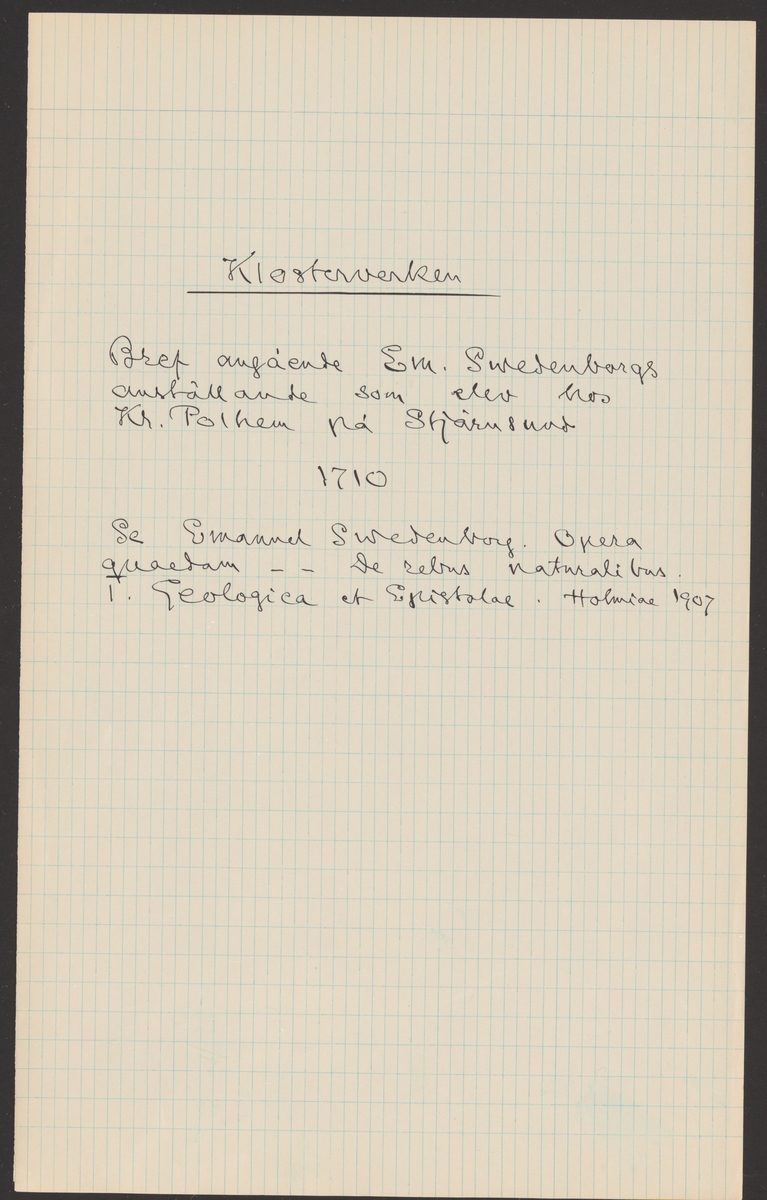 Klosterverken
Bref angående Em. Swedenborgs
anställande som elev hos
Kr. Polhem på Stjärnsund
1710
Se Emanuel Swedenborg. Opera
quaedam - - De rebus naturalibus.
I. Geologica et Epistolae. Holmiae 1907